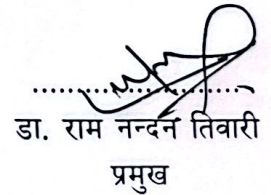 डा. राम नन्दन तिवारी
प्रमुख